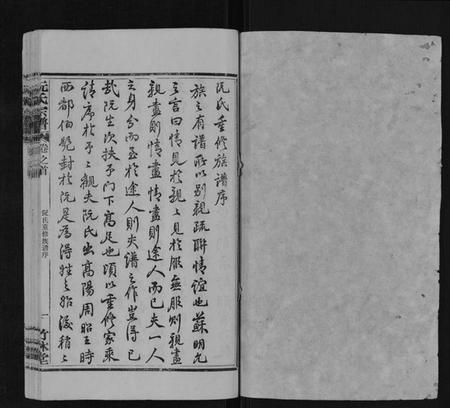 阮氏重修族譜序
族之有譜所以別親疏聯情誼也蘇明允
之言曰情見於親親見於服無服則親盡
親盡則情盡情盡則途人而已夫一人
之身分而至於途人則夫譜之作豈得已
哉阮生次扶予門下高足也頃以重修家乘
請序於予予觀夫阮氏出高陽周昭王時
西都伯髡封於阮是為得姓之始後稍稍
阮氏宗譜
卷之首
阮氏重修譜序
一
竹林堂